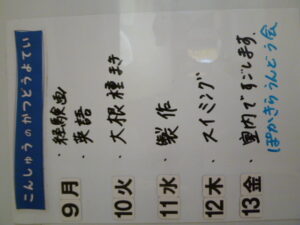 こんしゅうのかつどうよてい
9月 ・経験画
・英語
10火 ・大根種まき
11水 ・製作
12木 ・スイミング
13金 ・室内ですごします。
ぽかきらうんどう会